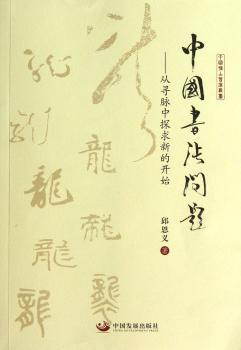 中國书法问题
——从寻脉中探求新的开始
邱恩义 著
龍
龍
龍
龍
中国发展出版社